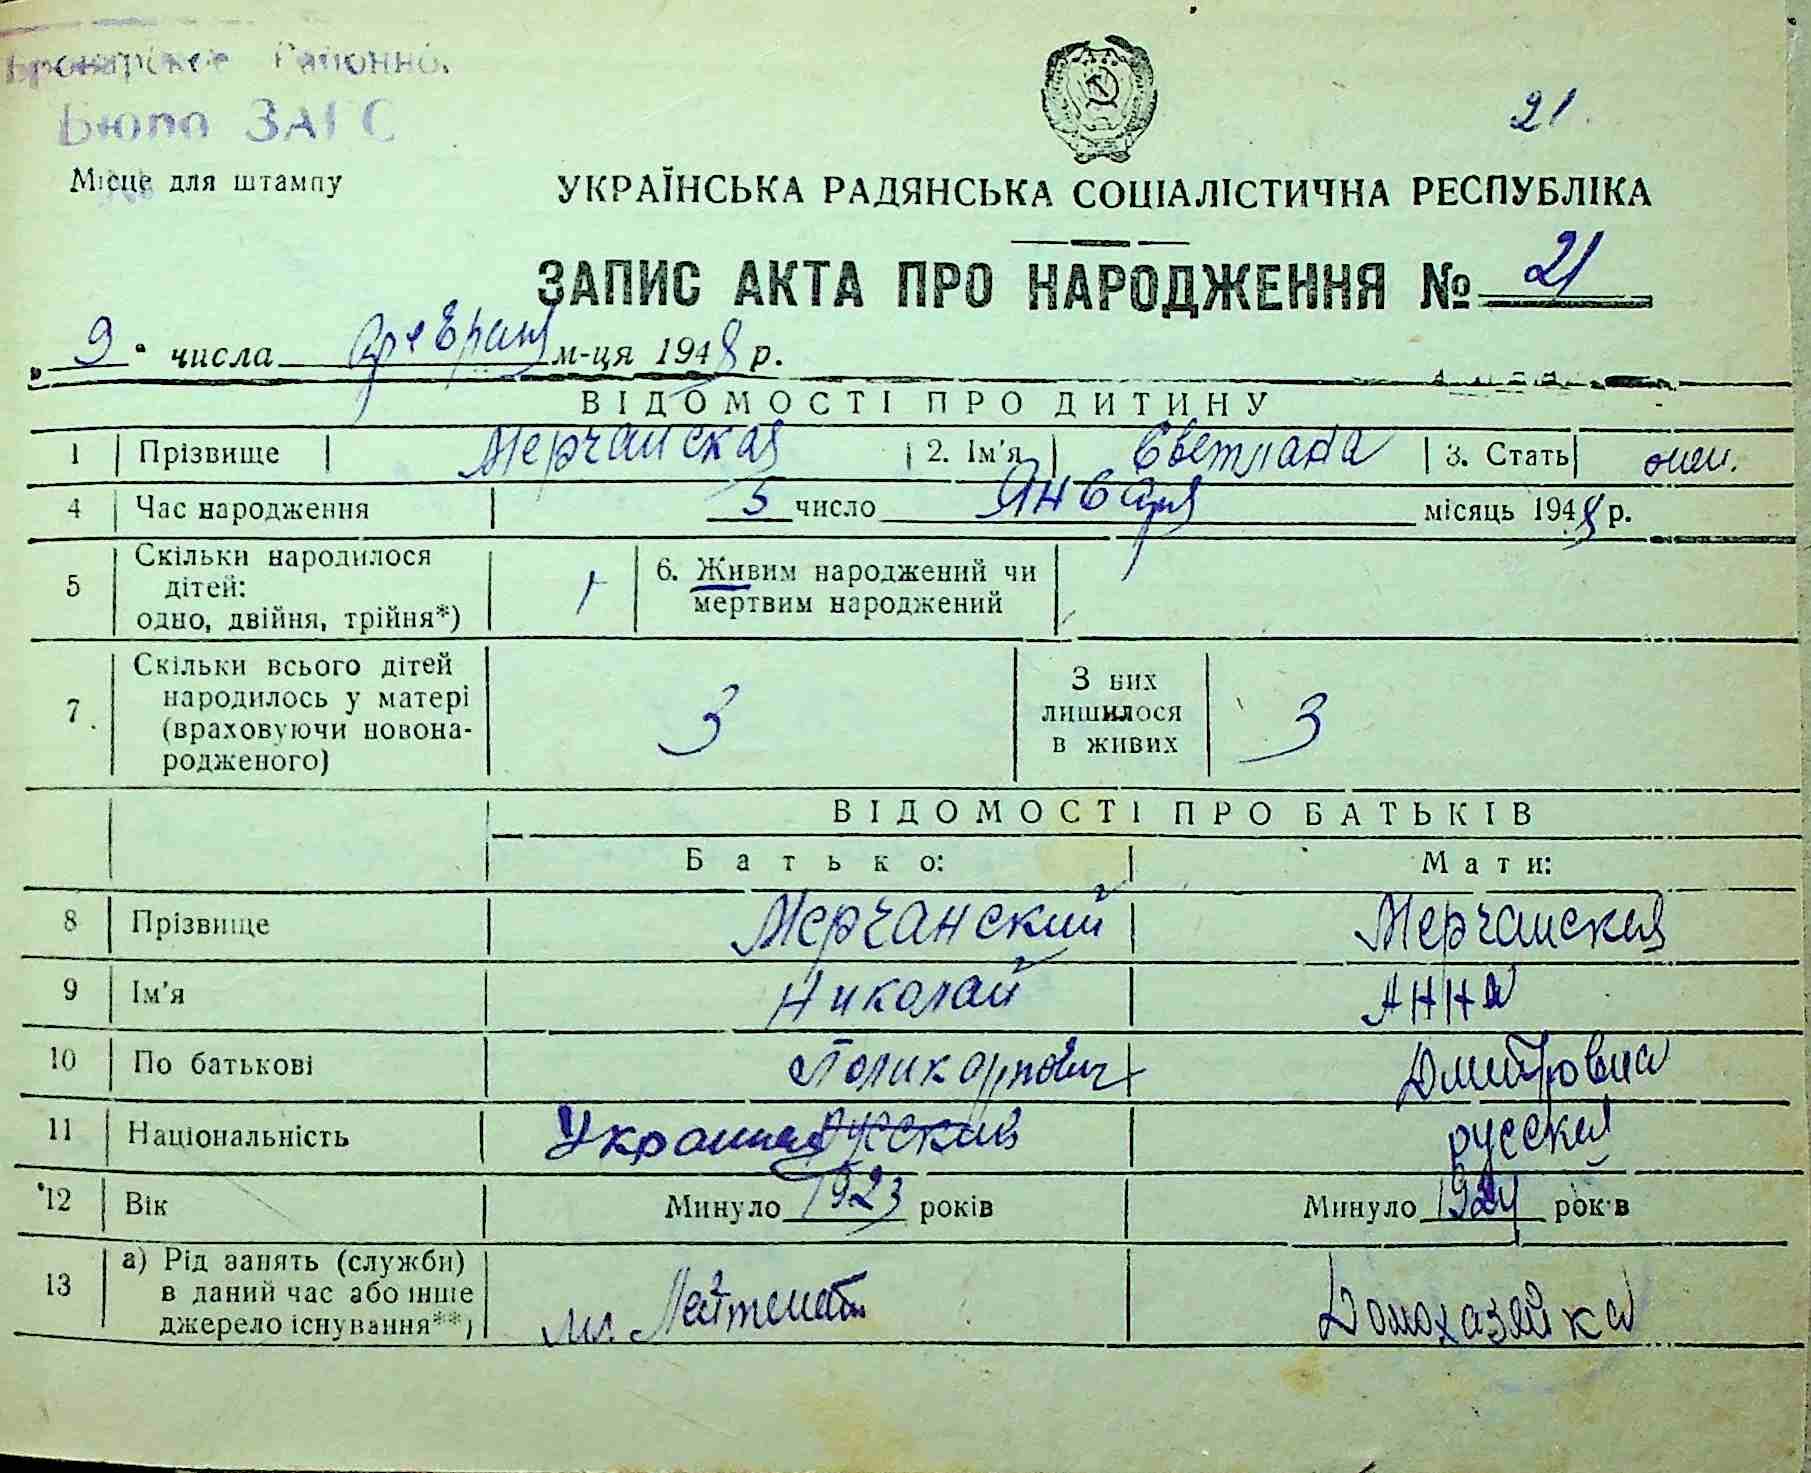 Броварское Районно.
Бюро ЗАГС
21.
Місце для штампу
УКРАЇНСЬКА РАДЯНСЬКА СОЦІАЛІСТИЧНА РЕСПУБЛІКА
ЗАПИС АКТА ПРО НАРОДЖЕННЯ № 21
„ 9 " числа февраля м-ця 1948 р.
ВІДОМОСТІ ПРО ДИТИНУ
1 Прізвище Мерчанская 2. Ім'я Светлана 3. Стать жен.
4 Час народження 5 число Января місяць 1948 р.
5 Скільки народилося дітей: одно, двійня, трійня*) 1 6. Живим народжений чи мертвим народжений
7 Скільки всього дітей народилось у матері (враховуючи новонародженого) 3 З них лишилося в живих 3
ВІДОМОСТІ ПРО БАТЬКІВ
Батько: Мати:
8 Прізвище Мерчанский Мерчанская
9 Ім'я Николай Анна
10 По батькові Поликарпович Дмитровна
11 Національність Украинец русский русская
12 Вік Минуло 1923 років Минуло 1924 років
13 а) Рід занять (служби) в даний час або інше джерело існування**) мл Лейтенант Домохазяйка